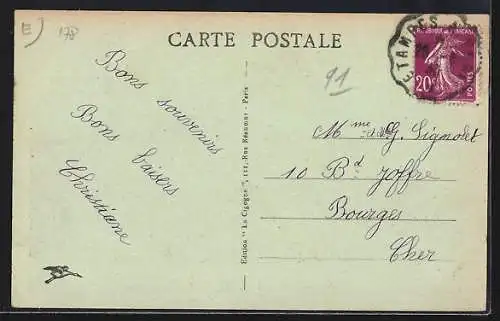 E
178
CARTE POSTALE
91
ETAMPES
REPUBLIQUE FRANÇAISE
20c
POSTES
Bons souvenirs
Bons baisers
Christiane
Edition "La Cigogne", 111, Rue Réaumur - Paris
Mme G. Lignolet
10 Bd Joffre
Bourges
Cher